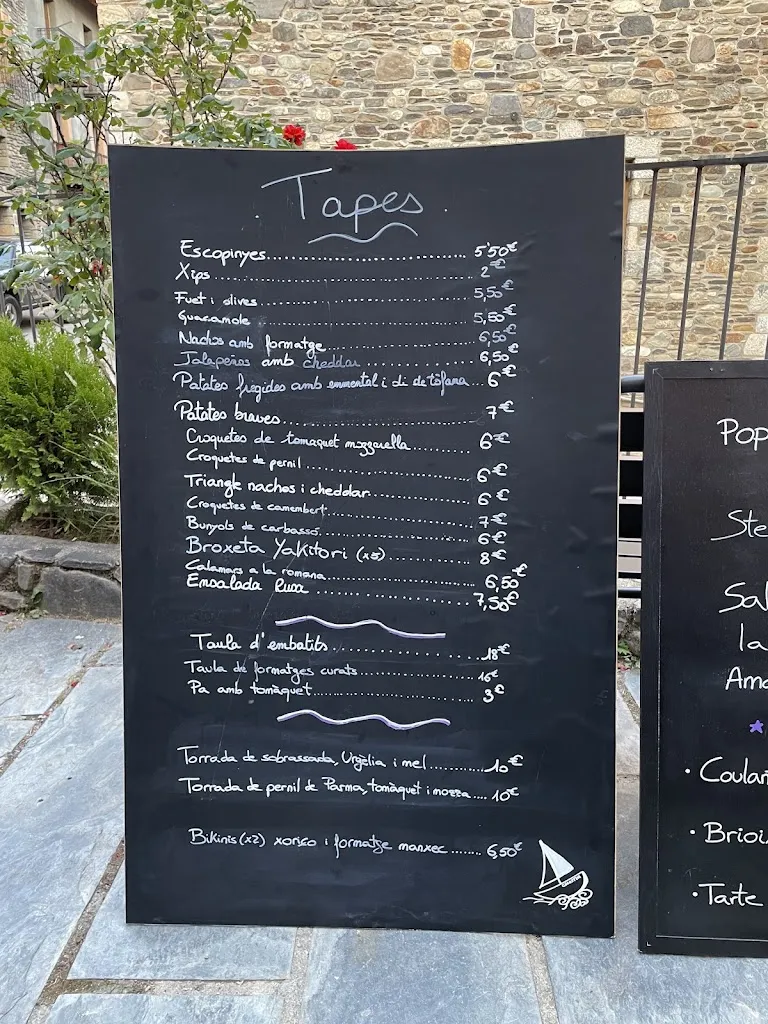 Tapes
Escopinyes 5'50€
Xips 2€
Fuet i olives 5,50€
Guacamole 5,50€
Nachos amb formatge 6,50€
Jalapeños amb cheddar 6,50€
Patates fregides amb emmental i oli de tòfana 6€
Patates braves 7€
Croquetes de tomaquet mozzarella 6€
Croquetes de pernil 6€
Triangle nachos i cheddar 6€
Croquetes de camembert 7€
Bunyols de carbassó 6€
Broxeta Yakitori (x3) 8€
Calamars a la romana 6,50€
Ensalada Rusa 7,50€
Taula d'embatits 18€
Taula de formatges curats 16€
Pa amb tomàquet 3€
Torrada de sobrassada, Urgèlia i mel 10€
Torrada de pernil de Parma, tomàquet i mozza 10€
Bikinis (x2) xoriço i formatge manxec 6,50€
Pop
Ste
Sal
la
Ama
• Coulan
• Brioi
• Tarte